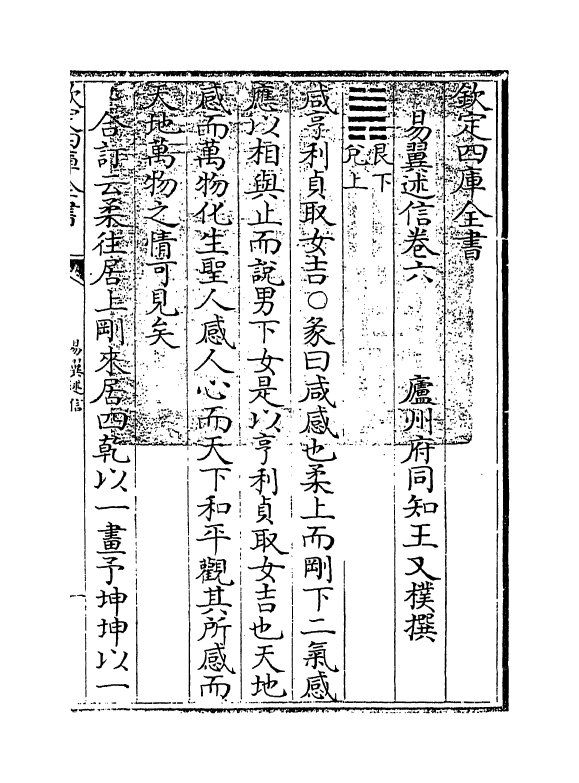 欽定四庫全書
易翼述信卷六 廬州府同知王又樸撰
䷞艮下兌上
咸亨利貞取女吉○彖曰咸感也柔上而剛下二氣感
應以相與止而說男下女是以亨利貞取女吉也天地
感而萬物化生聖人感人心而天下和平觀其所感而
天地萬物之情可見矣
合訂云柔往居上剛來居四乾以一畫予坤坤以一
欽定四庫全書 易翼述信